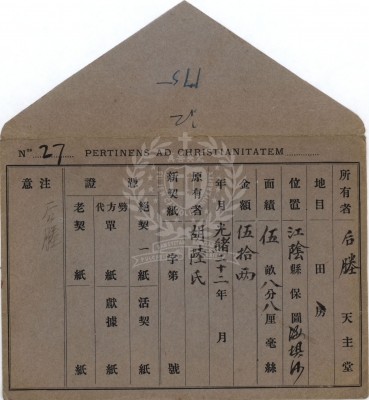 No. 27 PERTINENS AD CHRISTIANITATEM
所有者 后塍 天主堂
地目 田房
位置 江陰縣保圖
面積 伍畝八分八厘毫絲
金額 伍拾兩
年月 光緒二十二年 月
原有者 胡陸氏
新契紙 字第 號
憑證
絕契一紙 活契 紙
勞方單 紙 獻據 紙
代
老契 紙 紙
注意
后塍